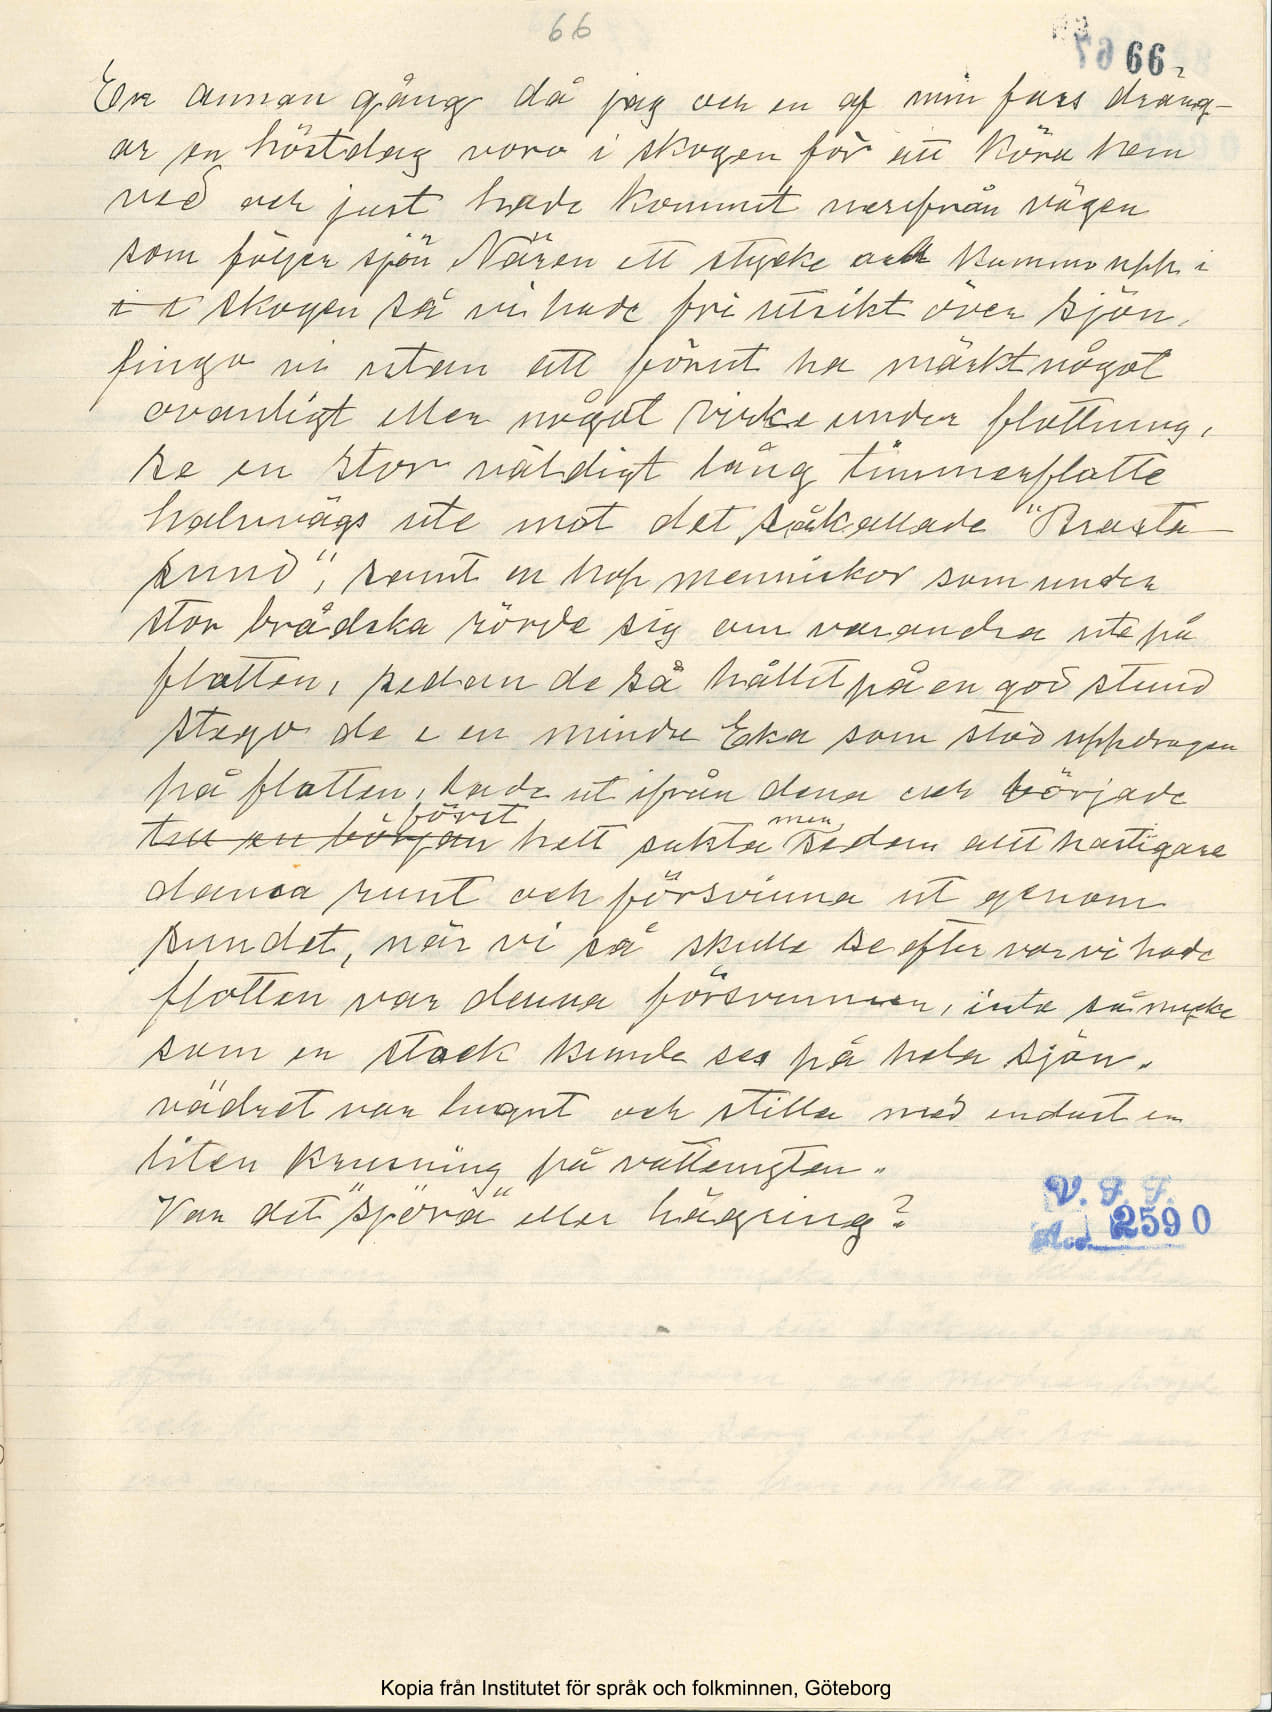 66
66.
En annan gång då jag och en af min fars dräng-
ar en höstdag voro i skogen för att köra hem
ved och just hade kommit nerifrån vägen
som följer sjön Nären ett stycke och kommo upp i
i skogen så vi hade fri utsikt över sjön,
fingo vi utan att förut ha märkt något
ovanligt eller något virke under flottning,
se en stor väldigt lång timmerflotte
halvvägs ute mot det såkallade "Brasta
sund", samt en hop menniskor som under
stor brådska rörde sig om varandra ute på
flotten, sedan de så hållit på en god stund
stego de i en mindre Eka som stod uppdragen
på flotten, lade ut ifrån dena och började
först men
till en början helt sakta sedan allt hastigare
dansa runt och försvinna ut genom
sundet, när vi så skulle se efter var vi hade
flotten var denna försvunnen, inte så mycke
som en stock kunde ses på hela sjön.
vädret var lugnt och stilla med endast en
liten krusning på vattenytan.
Var det "spörä" eller hägring?
V. F. F.
Acc. 2590
Kopia från Institutet för språk och folkminnen, Göteborg